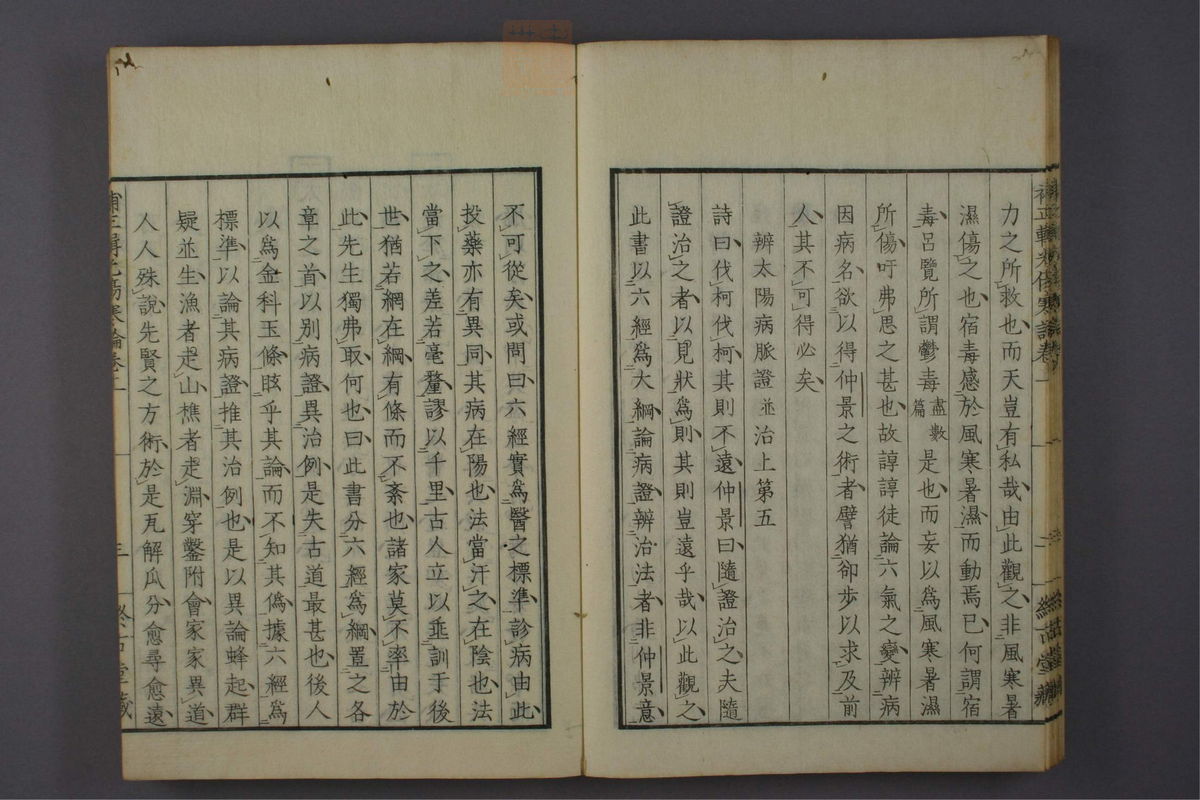 力之所救也而天豈有私哉由此觀之非風寒暑
濕傷之也宿毒感於風寒暑濕而動焉已何謂宿
毒呂覽所謂鬱毒盡數篇是也而妄以為風寒暑濕
所傷吁弗思之甚也故諄諄徒論六氣之變辨病
因病名欲以得仲景之術者譬猶卻步以求及前
人其不可得必矣
辨太陽病脈證並治上第五
詩曰伐柯伐柯其則不遠仲景曰隨證治之夫隨
證治之者以見狀為則其則豈遠乎哉以此觀之
此書以六經為大綱論病證辨治法者非仲景意
不可從矣或問曰六經實為醫之標準診病由此
投藥亦有異同其病在陽也法當汗之在陰也法
當下之差若毫釐謬以千里古人立以垂訓于後
世猶若網在綱有條而不紊也諸家莫不率由於
此先生獨弗取何也曰此書分六經為綱置之各
章之首以別病證異治例是失古道最甚也後人
以為金科玉條眩乎其論而不知其偽據六經為
標準以論其病證推其治例也是以異論蜂起群
疑並生漁者走山樵者走淵穿鑿附會家家異道
人人殊說先賢之方術於是瓦解瓜分愈尋愈遠